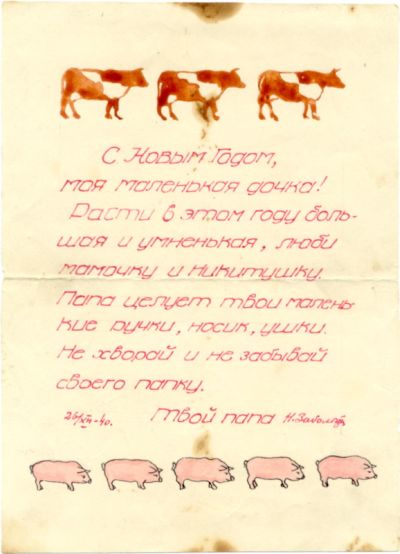 С Новым Годом,
моя маленькая дочка!
Расти в этом году боль-
шая и умненькая, люби
мамочку и Никитушку.
Папа целует твои малень
кие ручки, носик, ушки.
Не хворай и не забывай
своего папку.
Твой папа Н. Заболоц